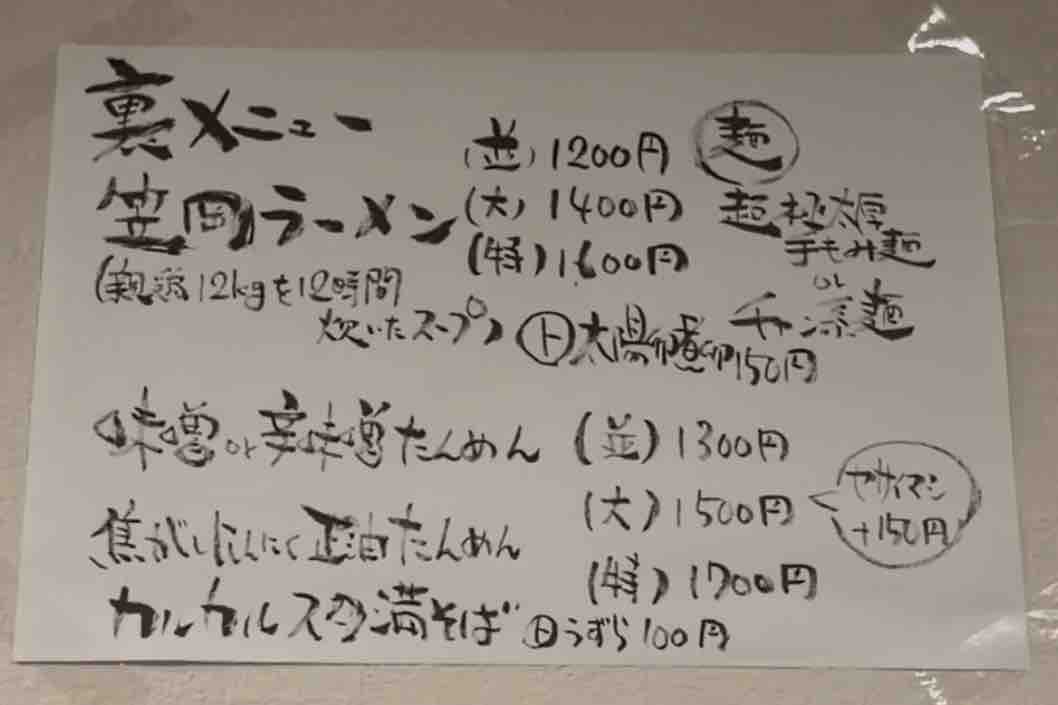 裏メニュー
笠岡ラーメン
(並) 1200円
(大) 1400円
(特) 1600円
(親鶏12kgを12時間
炊いたスープ)
麺
超極太厚
手もみ麺
or
麺
ト 太陽卵燻卵150円
味噌or辛味噌たんめん
焦がしにんにく正油たんめん
(並) 1300円
(大) 1500円
(特) 1700円
ヤサイマシ
+150円
カルカルスタ満そば トうずら100円